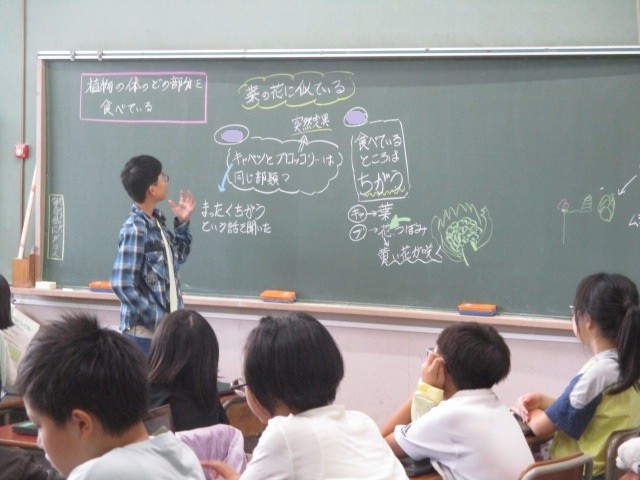 植物の体のどの部分を
食べている
菜の花に似ている
突然変異
キャベツとブロッコリーは
同じ部類？
まったくちがう
という話を聞いた
食べている
ところは
ちがう
キャ→葉
ブ→花つぼみ
黄い花が咲く